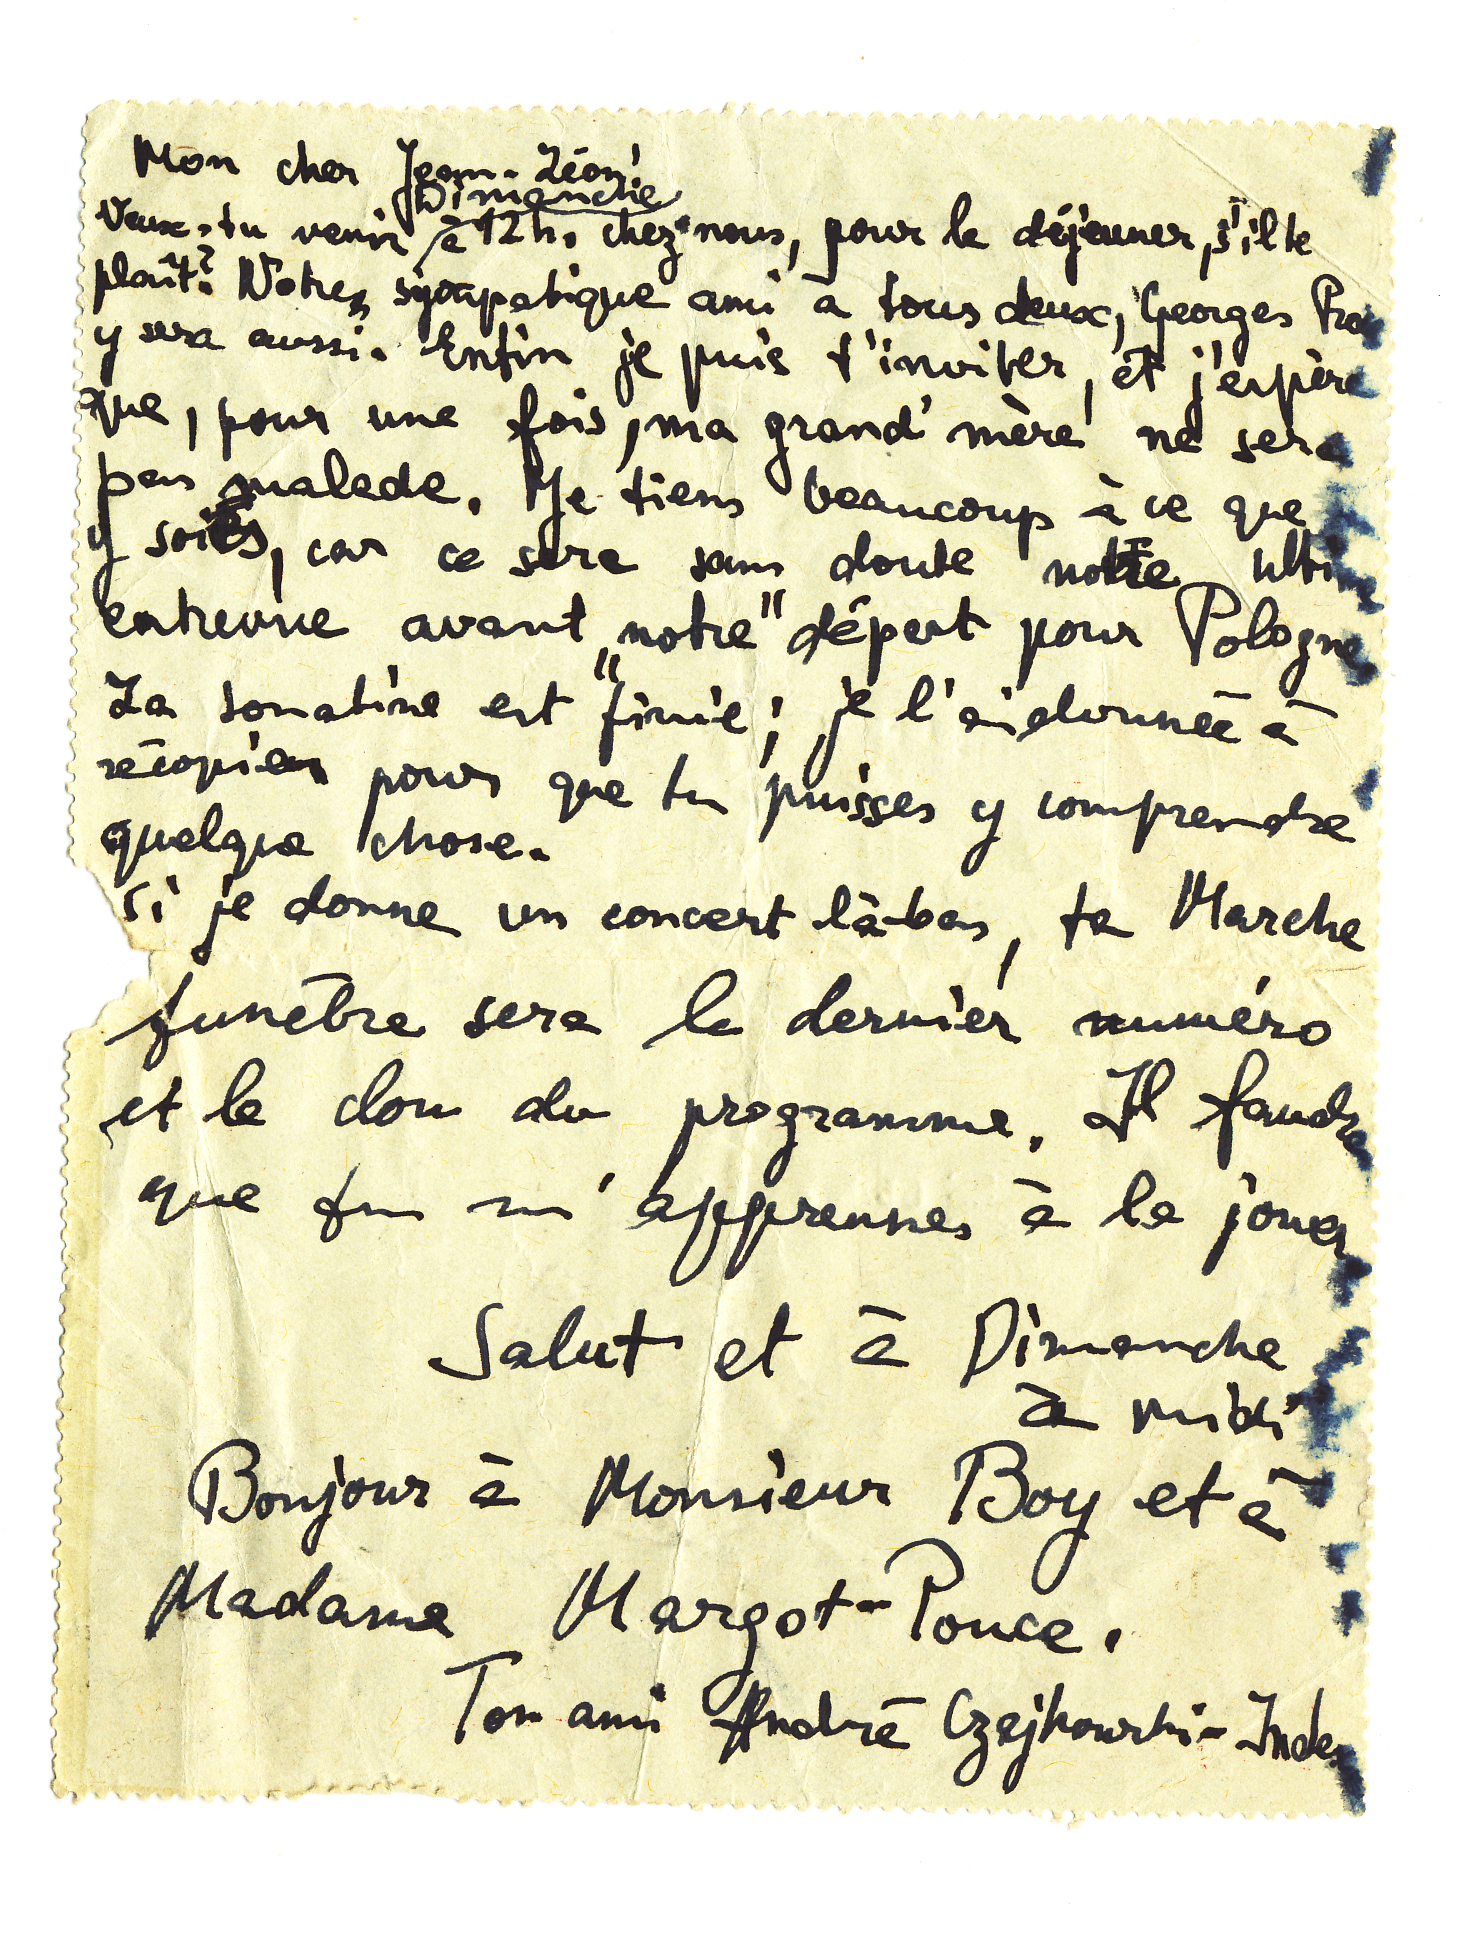 Mon cher Jean-Léon!
Dimanche
Veux-tu venir à 12h. chez nous, pour le déjeuner, s'il te
plaît? Notre sympatique ami à tous deux, Georges
y sera aussi. Enfin je puis t'inviter, et j'espère
que, pour une fois, ma grand'mère ne sera
pas malade. Je tiens beaucoup à ce que
y sois, car ce sera sans doute notre ultime
entrevue avant „notre" départ pour Pologne
La sonatine est "finie; je l'ai donnée à
récopier pour que tu puisses y comprendre
quelque chose.
Si je donne un concert là-bas, ta Marche
funèbre sera le dernier numéro
et le clou du programme. Il faudra
que tu m'apprennes à la jouer
Salut et à Dimanche
à midi
Bonjour à Monsieur Boy et à
Madame Margot-Pouce.
Ton ami André Czajkowski-Index